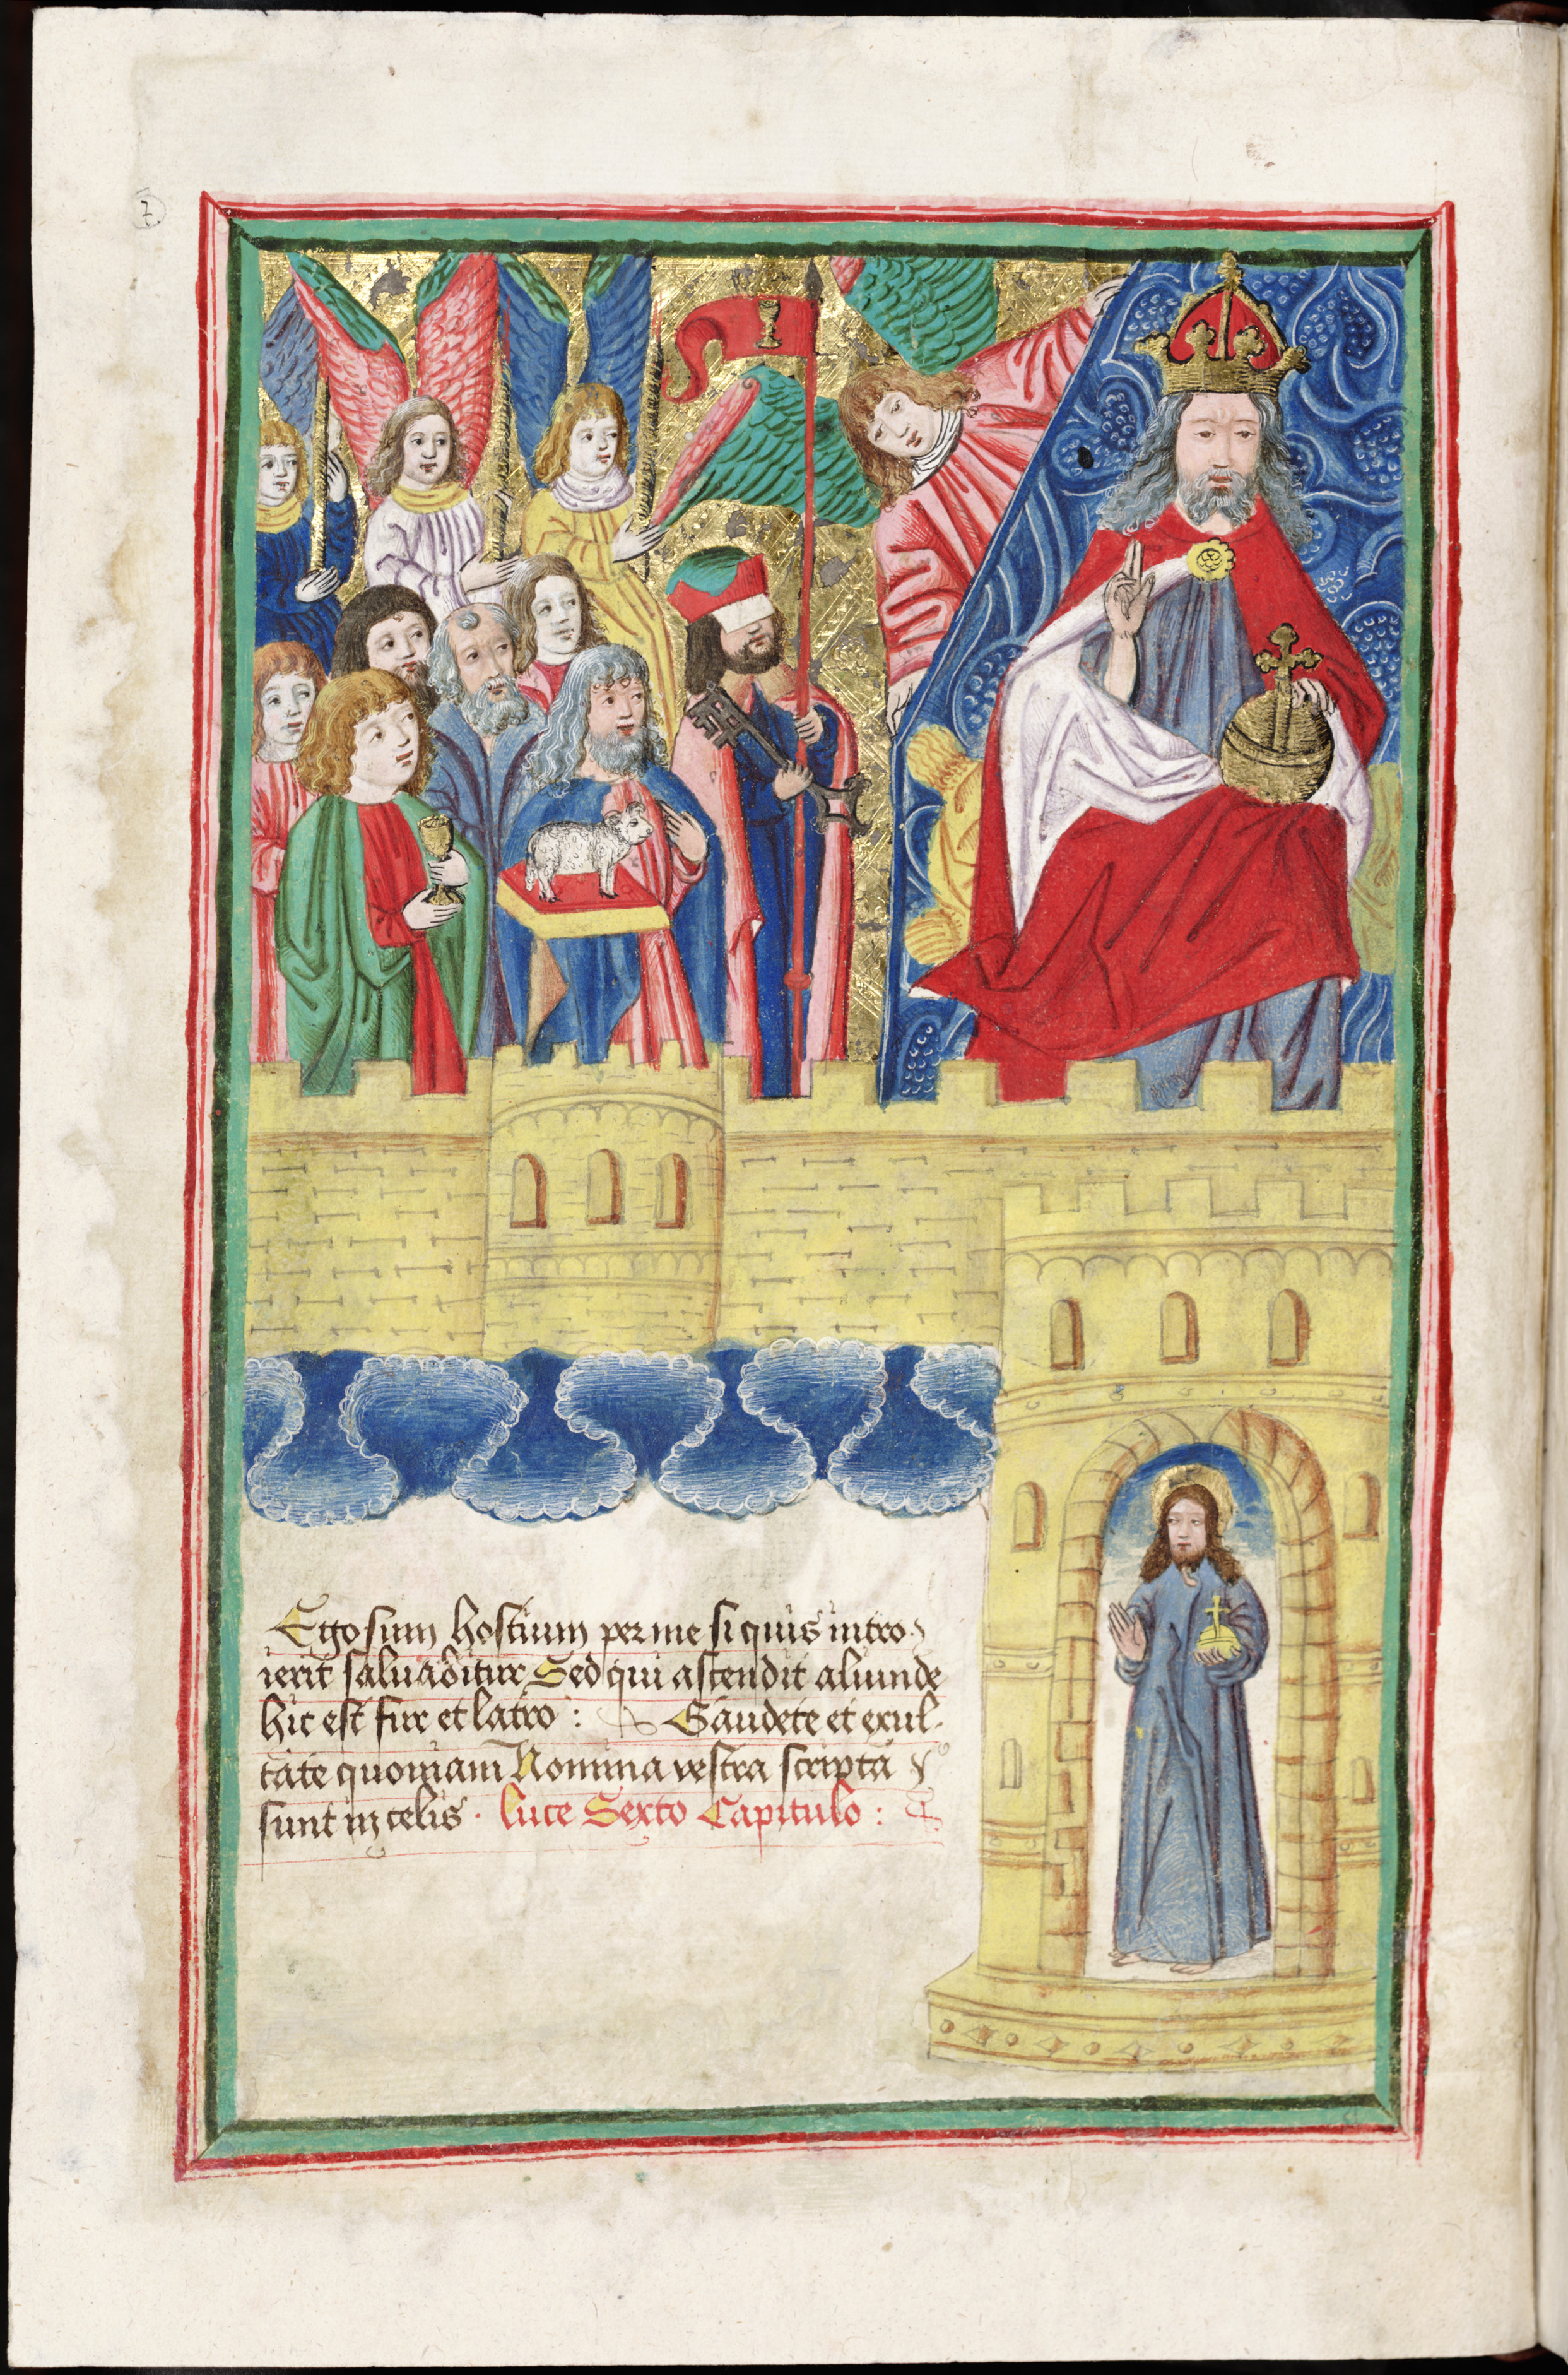 7.
Ego sum hostium per me si quis intro
ierit saluabitur Sed qui ascendit aliunde
hic est fur et latro : Gaudete et exul-
tate quoniam Nomina vestra scripta
sunt in celis · luce Sexto Capitulo :